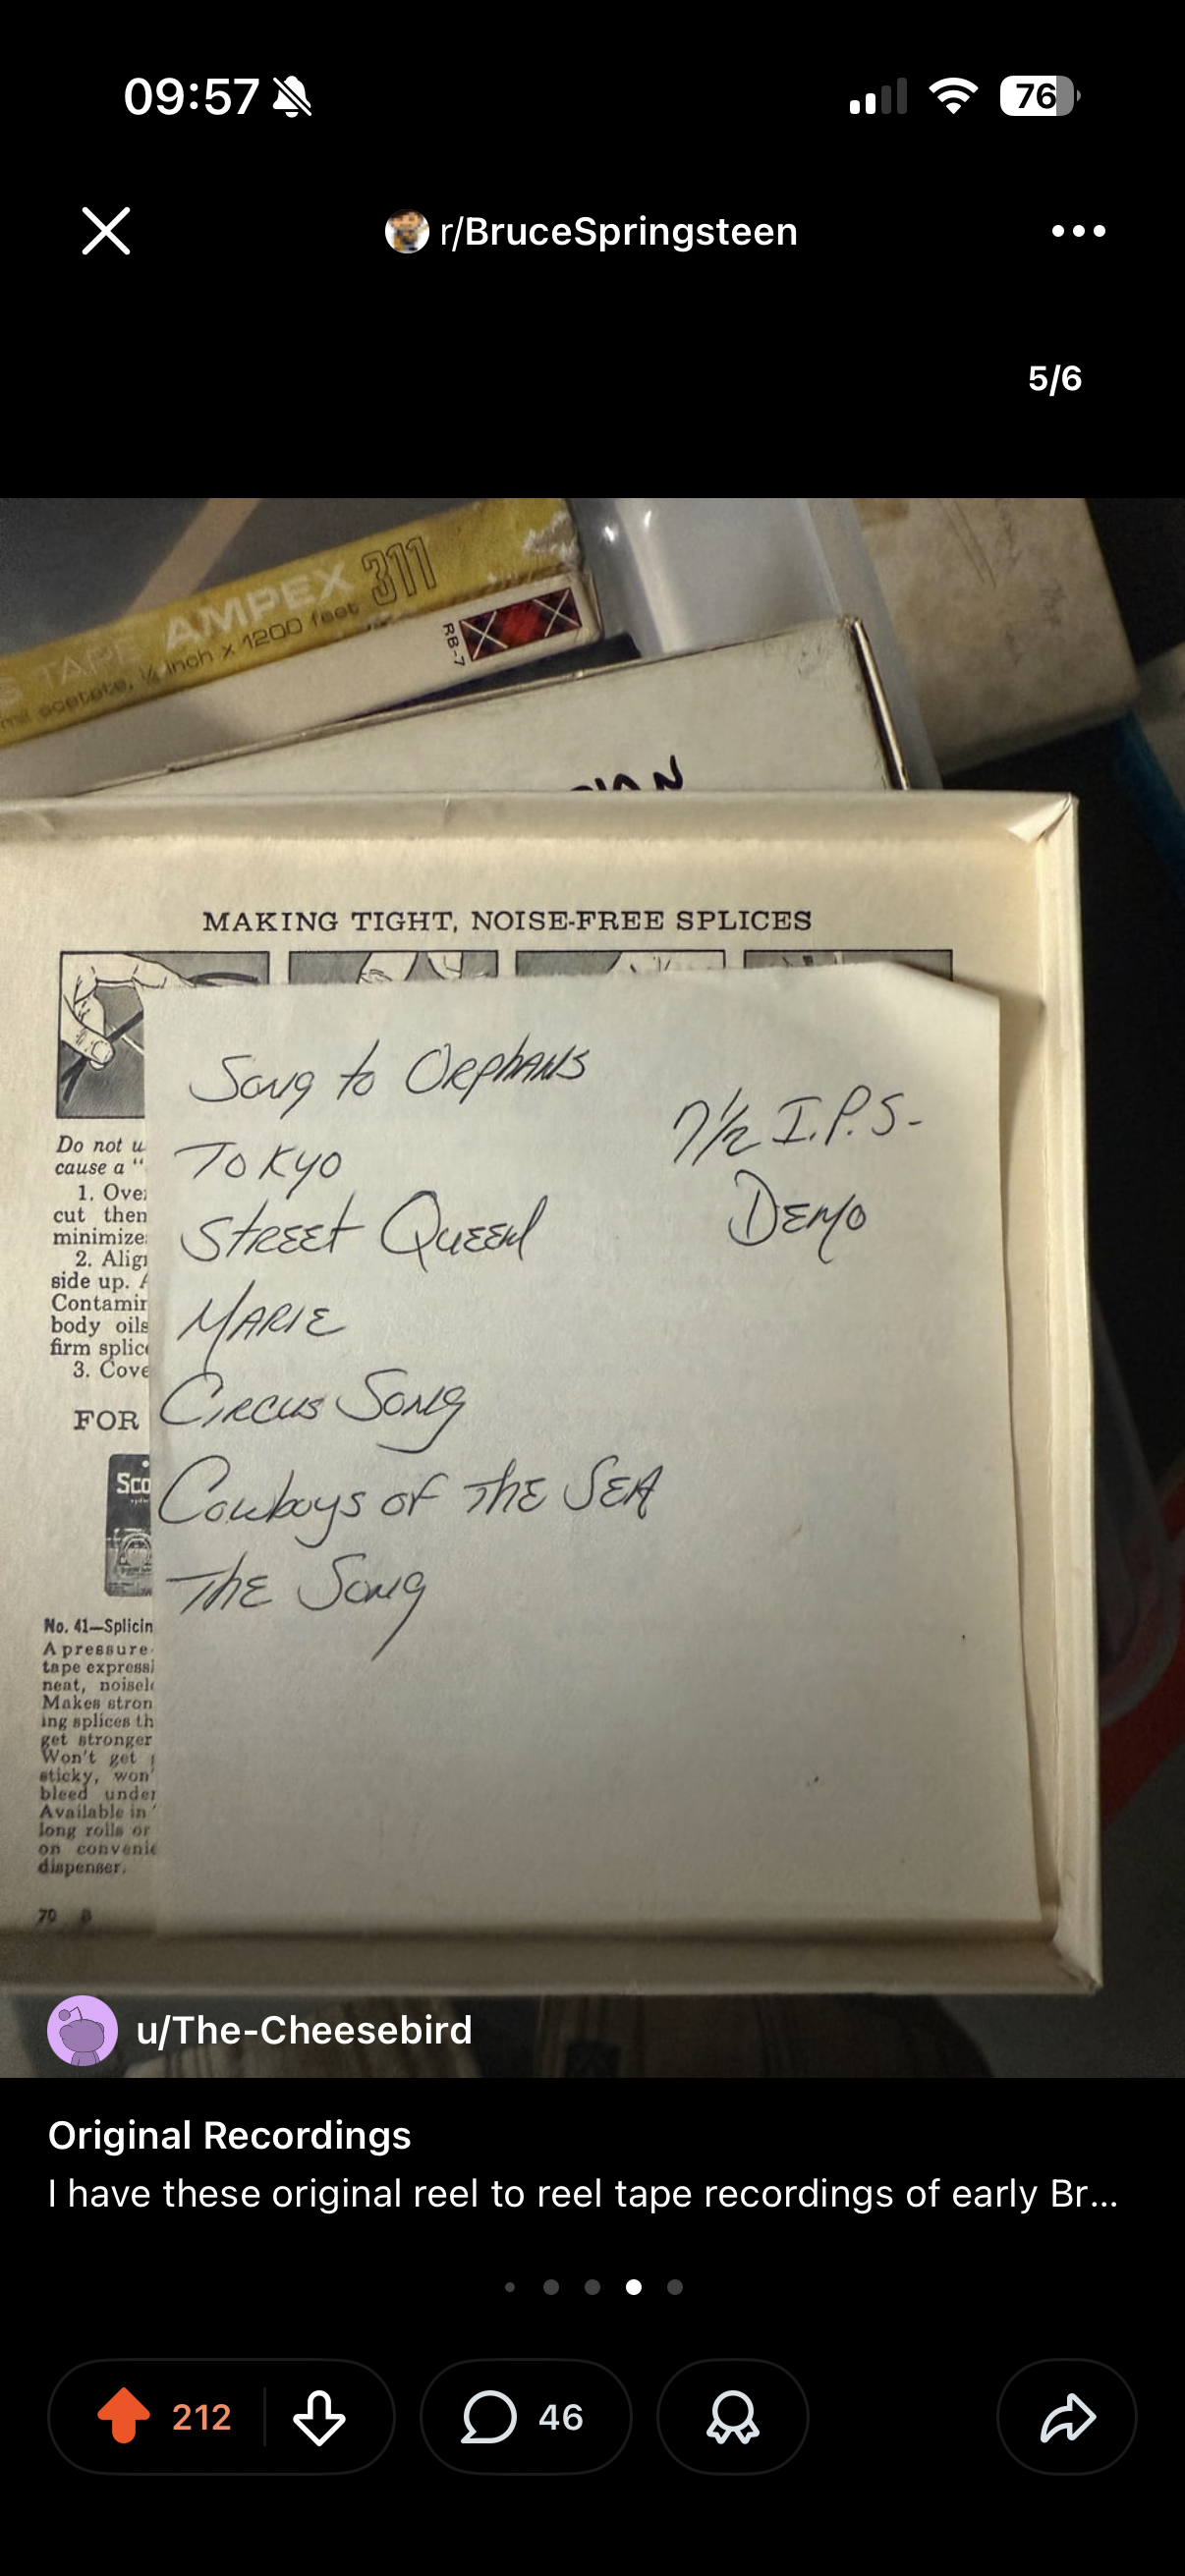 09:57
76
r/BruceSpringsteen
5/6
TAPE AMPEX 311
acetate, ¼ inch x 1200 feet
RB-7
MAKING TIGHT, NOISE-FREE SPLICES
Song to Orphans
7½ I.P.S.-
Tokyo
Demo
Street Queen
Marie
Circus Song
Cowboys of the Sea
The Song
Do not u
cause a "
1. Over
cut then
minimize
2. Align
side up. A
Contamin
body oils
firm splice
3. Cove
FOR
Sco
No. 41—Splicin
A pressure-
tape expressi
neat, noisele
Makes stron
ing splices th
get stronger
Won't get
sticky, won'
bleed under
Available in
long rolls or
on convenie
dispenser.
70 B
u/The-Cheesebird
Original Recordings
I have these original reel to reel tape recordings of early Br...
212
46